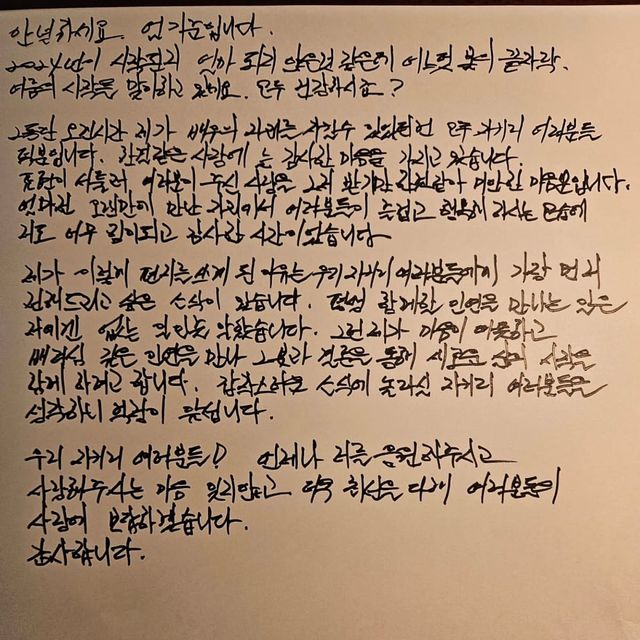 안녕하세요. 엄기준입니다.
2024년이 시작된지 얼마 되지 않은것 같은데 어느덧 봄의 끝자락.
여름의 시작을 맞이하고 있네요. 모두 건강하시죠?
그동안 오랜시간 제가 배우의 자리를 지킬수 있었던건 모두 자키리 여러분들
덕분입니다. 한결같은 사랑에 늘 감사한 마음을 가지고 있습니다.
표현이 서툴러 여러분이 주신 사랑을 그저 받기만 한것같아 미안한 마음뿐입니다.
얼마전 오랜만에 만난 자리에서 여러분들이 즐겁고 행복해 하시는 모습에
저도 너무 힘이되고 감사한 시간이었습니다
제가 이렇게 편지를 쓰게 된 이유는 우리 자키리 여러분들에게 가장 먼저
전해드리고 싶은 소식이 있습니다. 평생 함께할 인연을 만나는 일은
저에겐 없는 일인줄 알았습니다. 그런 제가 마음이 따뜻하고
배려심 깊은 인연을 만나 그분과 결혼을 통해 새로운 삶의 시작을
함께 하려고 합니다. 갑작스러운 소식에 놀라실 자키리 여러분들을
생각하니 부담이 앞섭니다.
우리 자키리 여러분들! 언제나 저를 응원해주시고
사랑해주시는 마음 잊지않고 더욱 최선을 다해 여러분들의
사랑에 보답하겠습니다.
감사합니다.